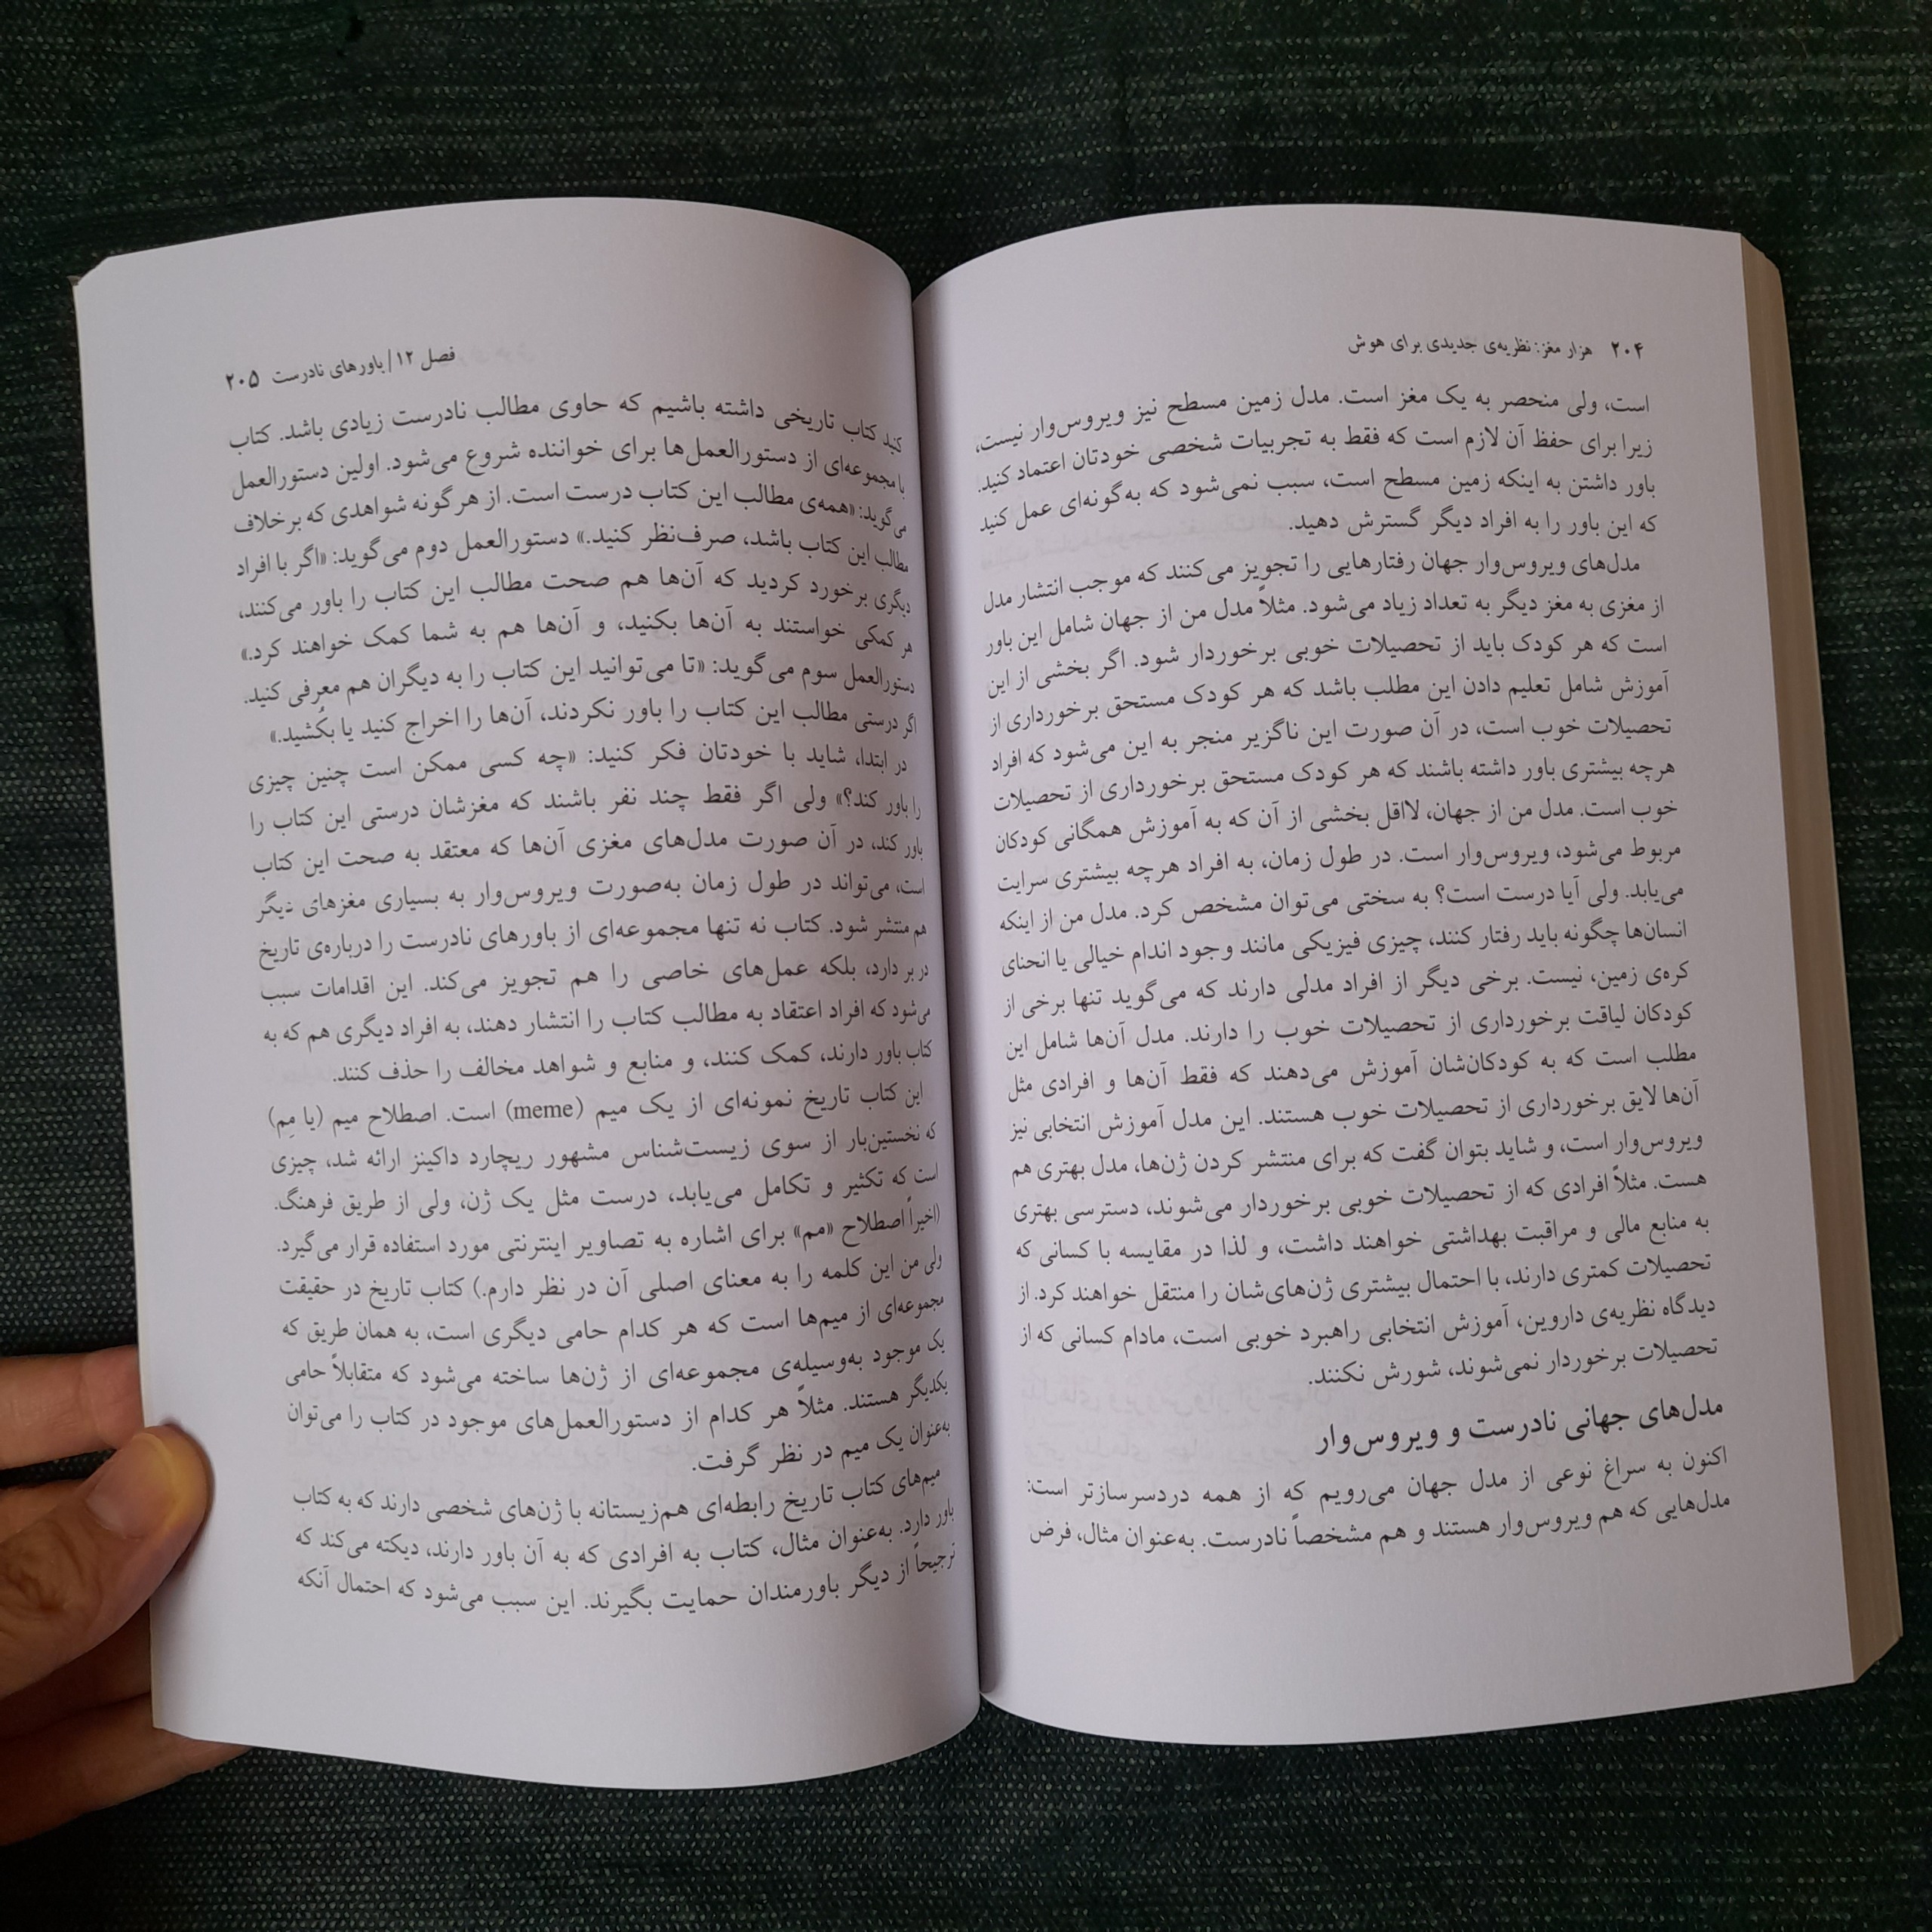 ۲۰۴ هزار مغز: نظریه‌ی جدیدی برای هوش
است، ولی منحصر به یک مغز است. مدل زمین مسطح نیز ویروس‌وار نیست،
زیرا برای حفظ آن لازم است که فقط به تجربیات شخصی خودتان اعتماد کنید.
باور داشتن به اینکه زمین مسطح است، سبب نمی‌شود که به‌گونه‌ای عمل کنید
که این باور را به افراد دیگر گسترش دهید.
مدل‌های ویروس‌وار جهان رفتارهایی را تجویز می‌کنند که موجب انتشار مدل
از مغزی به مغز دیگر به تعداد زیاد می‌شود. مثلاً مدل من از جهان شامل این باور
است که هر کودک باید از تحصیلات خوبی برخوردار شود. اگر بخشی از این
آموزش شامل تعلیم دادن این مطلب باشد که هر کودک مستحق برخورداری از
تحصیلات خوب است، در آن صورت این ناگزیر منجر به این می‌شود که افراد
هرچه بیشتری باور داشته باشند که هر کودک مستحق برخورداری از تحصیلات
خوب است. مدل من از جهان، لااقل بخشی از آن که به آموزش همگانی کودکان
مربوط می‌شود، ویروس‌وار است. در طول زمان، به افراد هرچه بیشتری سرایت
می‌یابد. ولی آیا درست است؟ به سختی می‌توان مشخص کرد. مدل من از اینکه
انسان‌ها چگونه باید رفتار کنند، چیزی فیزیکی مانند وجود اندام خیالی یا انحنای
کره‌ی زمین، نیست. برخی دیگر از افراد مدلی دارند که می‌گوید تنها برخی از
کودکان لیاقت برخورداری از تحصیلات خوب را دارند. مدل آن‌ها شامل این
مطلب است که به کودکان‌شان آموزش می‌دهند که فقط آن‌ها و افرادی مثل
آن‌ها لایق برخورداری از تحصیلات خوب هستند. این مدل آموزش انتخابی نیز
ویروس‌وار است، و شاید بتوان گفت که برای منتشر کردن ژن‌ها، مدل بهتری هم
هست. مثلاً افرادی که از تحصیلات خوبی برخوردار می‌شوند، دسترسی بهتری
به منابع مالی و مراقبت بهداشتی خواهند داشت، و لذا در مقایسه با کسانی که
تحصیلات کمتری دارند، با احتمال بیشتری ژن‌های‌شان را منتقل خواهند کرد. از
دیدگاه نظریه‌ی داروین، آموزش انتخابی راهبرد خوبی است، مادام کسانی که از
تحصیلات برخوردار نمی‌شوند، شورش نکنند.
مدل‌های جهانی نادرست و ویروس‌وار
اکنون به سراغ نوعی از مدل جهان می‌رویم که از همه دردسرسازتر است:
مدل‌هایی که هم ویروس‌وار هستند و هم مشخصاً نادرست. به‌عنوان مثال، فرض
فصل ۱۲ | باورهای نادرست ۲۰۵
کنید کتاب تاریخی داشته باشیم که حاوی مطالب نادرست زیادی باشد. کتاب
با مجموعه‌ای از دستورالعمل‌ها برای خواننده شروع می‌شود. اولین دستورالعمل
می‌گوید: «همه‌ی مطالب این کتاب درست است. از هرگونه شواهدی که برخلاف
مطالب این کتاب باشد، صرف‌نظر کنید.» دستورالعمل دوم می‌گوید: «اگر با افراد
دیگری برخورد کردید که آن‌ها هم صحت مطالب این کتاب را باور می‌کنند،
هر کمکی خواستند به آن‌ها بکنید، و آن‌ها هم به شما کمک خواهند کرد.»
دستورالعمل سوم می‌گوید: «تا می‌توانید این کتاب را به دیگران هم معرفی کنید.
اگر درستی مطالب این کتاب را باور نکردند، آن‌ها را اخراج کنید یا بکُشید.»
در ابتدا، شاید با خودتان فکر کنید: «چه کسی ممکن است چنین چیزی
را باور کند؟» ولی اگر فقط چند نفر باشند که مغزشان درستی این کتاب را
باور کند، در آن صورت مدل‌های مغزی آن‌ها که معتقد به صحت این کتاب
است، می‌تواند در طول زمان به‌صورت ویروس‌وار به بسیاری مغزهای دیگر
هم منتشر شود. کتاب نه تنها مجموعه‌ای از باورهای نادرست را درباره‌ی تاریخ
در بر دارد، بلکه عمل‌های خاصی را هم تجویز می‌کند. این اقدامات سبب
می‌شود که افراد اعتقاد به مطالب کتاب را انتشار دهند، به افراد دیگری هم که به
کتاب باور دارند، کمک کنند، و منابع و شواهد مخالف را حذف کنند.
این کتاب تاریخ نمونه‌ای از یک میم (meme) است. اصطلاح میم (یا مِم)
که نخستین‌بار از سوی زیست‌شناس مشهور ریچارد داکینز ارائه شد، چیزی
است که تکثیر و تکامل می‌یابد، درست مثل یک ژن، ولی از طریق فرهنگ.
(اخیراً اصطلاح «مم» برای اشاره به تصاویر اینترنتی مورد استفاده قرار می‌گیرد.
ولی من این کلمه را به معنای اصلی آن در نظر دارم.) کتاب تاریخ در حقیقت
مجموعه‌ای از میم‌ها است که هر کدام حامی دیگری است، به همان طریق که
یک موجود به‌وسیله‌ی مجموعه‌ای از ژن‌ها ساخته می‌شود که متقابلاً حامی
یکدیگر هستند. مثلاً هر کدام از دستورالعمل‌های موجود در کتاب را می‌توان
به‌عنوان یک میم در نظر گرفت.
میم‌های کتاب تاریخ رابطه‌ای هم‌زیستانه با ژن‌های شخصی دارند که به کتاب
باور دارد. به‌عنوان مثال، کتاب به افرادی که به آن باور دارند، دیکته می‌کند که
ترجیحاً از دیگر باورمندان حمایت بگیرند. این سبب می‌شود که احتمال آنکه